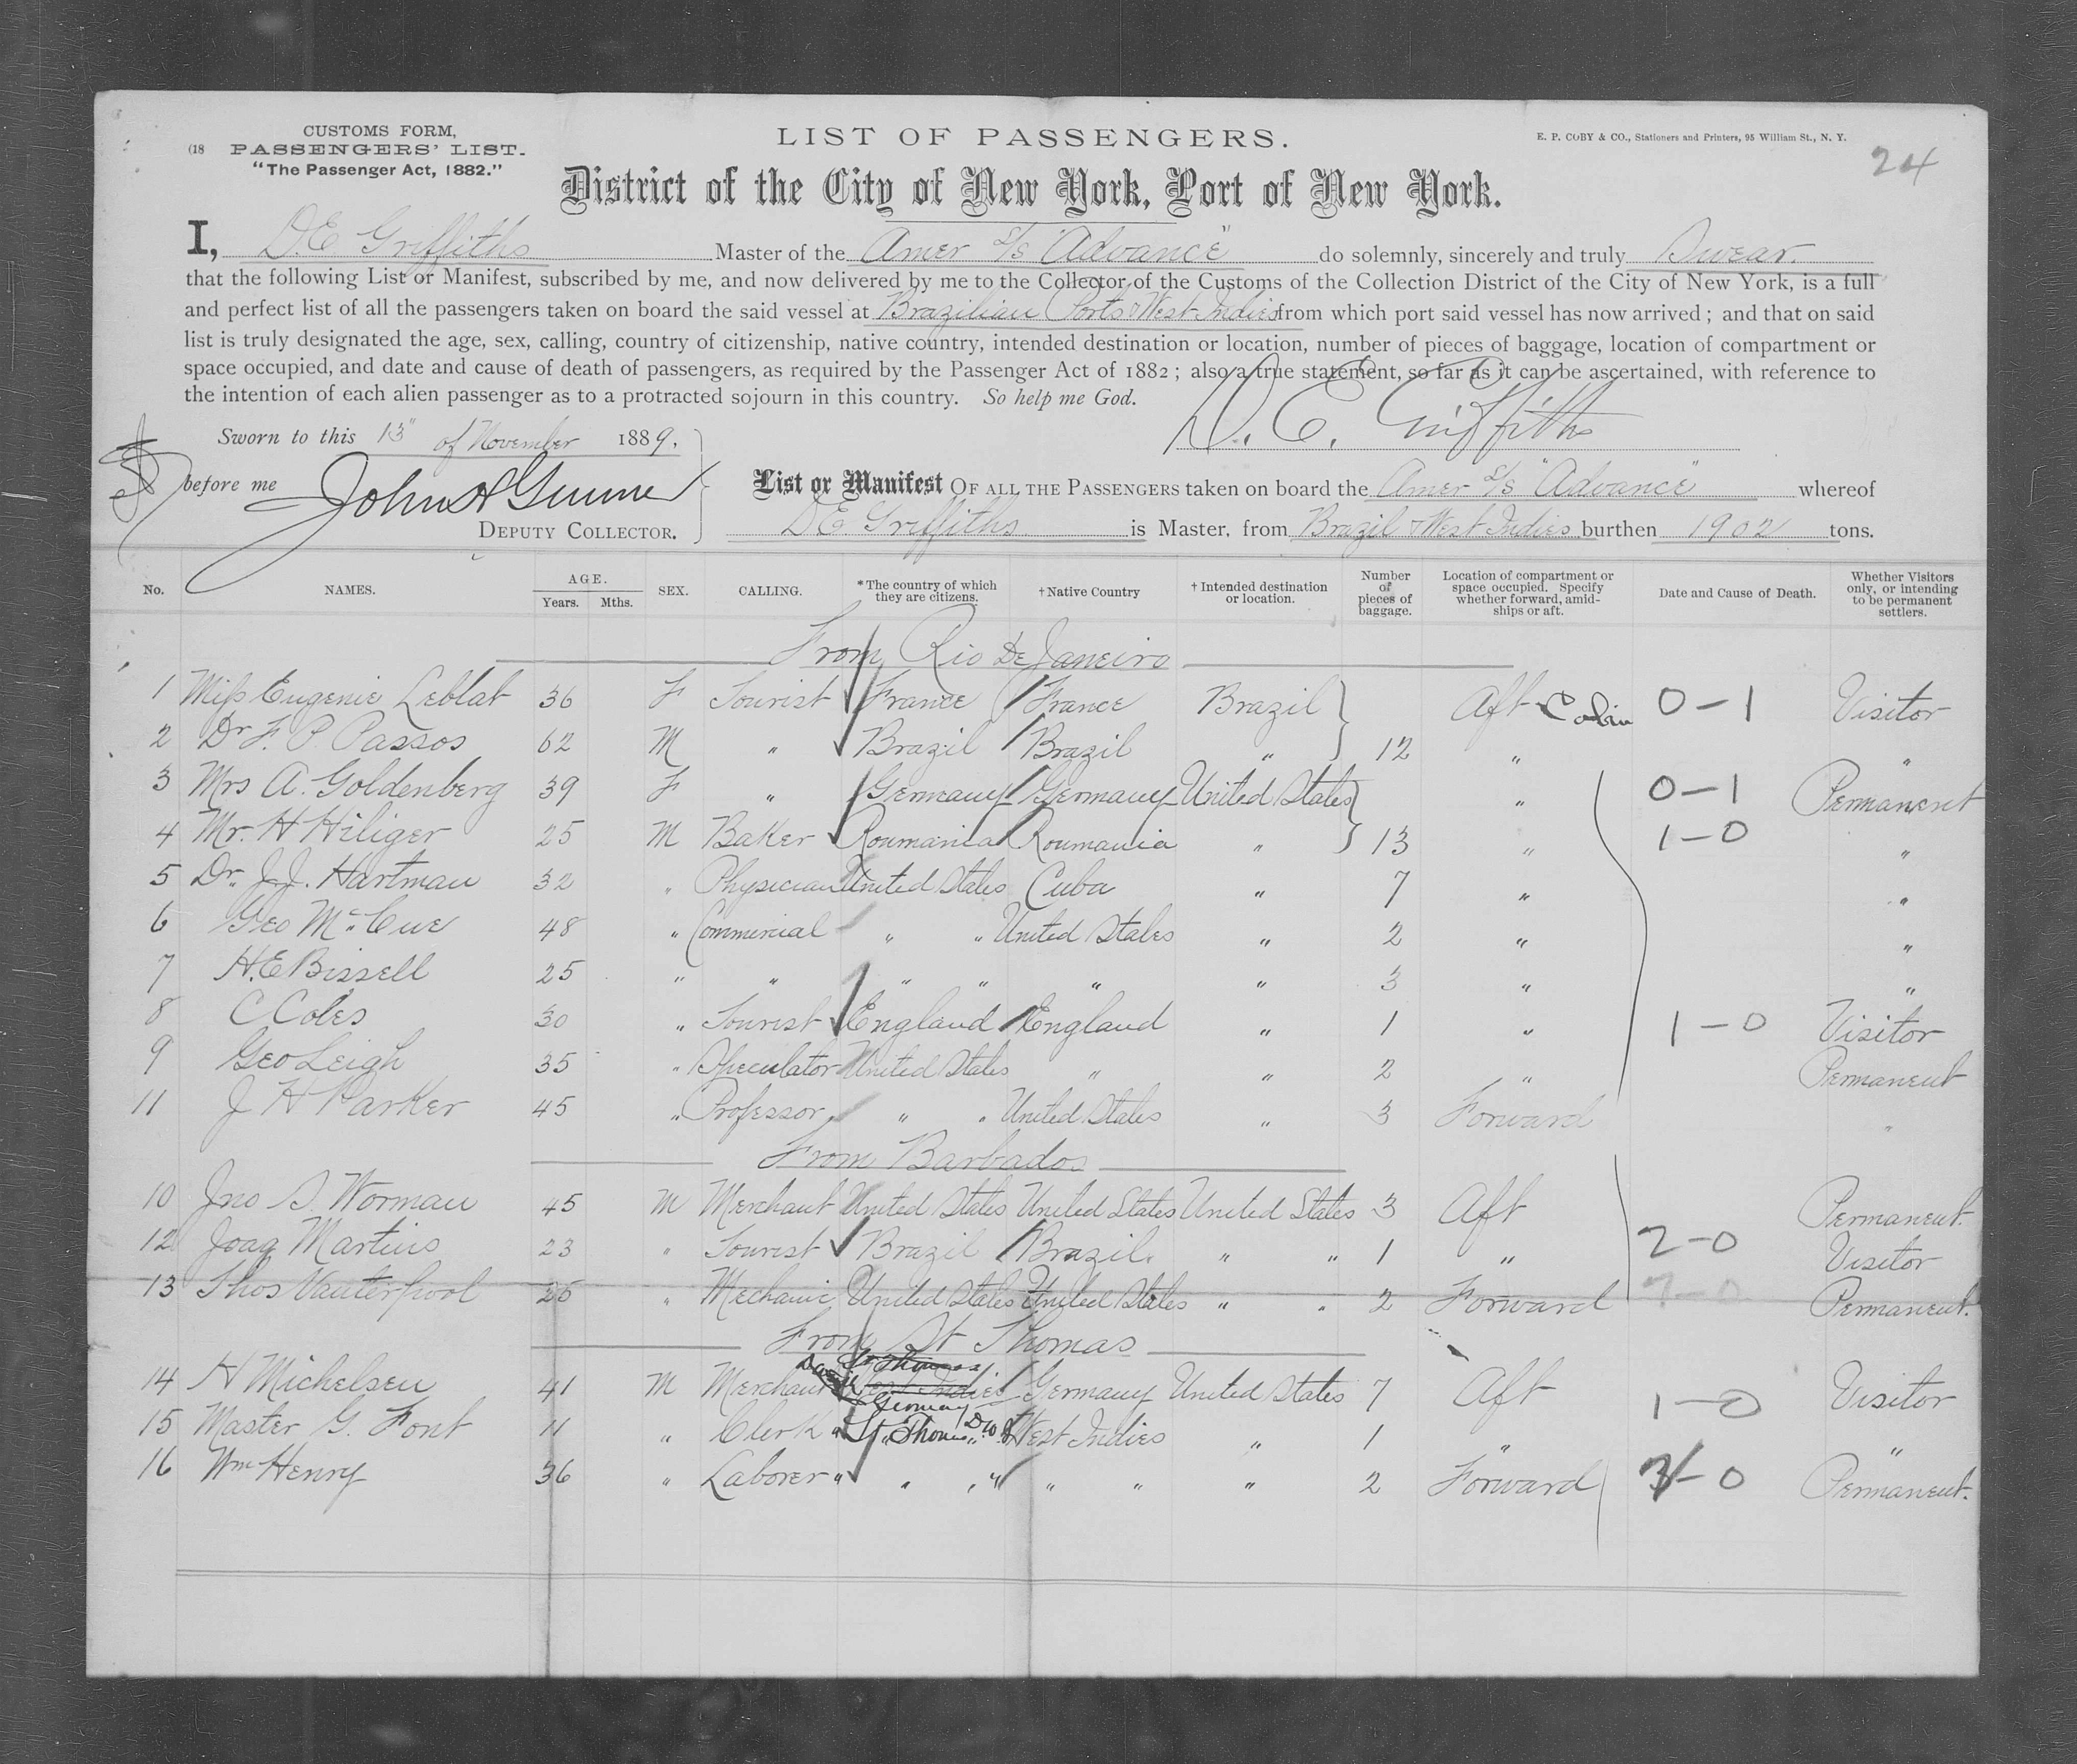 (18
CUSTOMS FORM,
PASSENGERS' LIST.
"The Passenger Act, 1882."
LIST OF PASSENGERS.
E. P. COBY & CO., Stationers and Printers, 95 William St., N. Y.
24
District of the City of New York, Port of New York.
I, D. E. Griffiths Master of the Amer S/S "Advance" do solemnly, sincerely and truly Swear.
that the following List or Manifest, subscribed by me, and now delivered by me to the Collector of the Customs of the Collection District of the City of New York, is a full
and perfect list of all the passengers taken on board the said vessel at Brazilian Ports & West Indies from which port said vessel has now arrived; and that on said
list is truly designated the age, sex, calling, country of citizenship, native country, intended destination or location, number of pieces of baggage, location of compartment or
space occupied, and date and cause of death of passengers, as required by the Passenger Act of 1882; also a true statement, so far as it can be ascertained, with reference to
the intention of each alien passenger as to a protracted sojourn in this country. So help me God.
D. E. Griffiths
Sworn to this 13" of November 1889.
before me John A Gunner
DEPUTY COLLECTOR.
List or Manifest OF ALL THE PASSENGERS taken on board the Amer S/S "Advance" whereof
D. E. Griffiths is Master, from Brazil & West Indies burthen 1902 tons.
No. NAMES. AGE. Years. Mths. SEX. CALLING. *The country of which they are citizens. †Native Country †Intended destination or location. Number of pieces of baggage. Location of compartment or space occupied. Specify whether forward, amidships or aft. Date and Cause of Death. Whether Visitors only, or intending to be permanent settlers.
From Rio De Janeiro
1 Miss Eugenie Leblat 36 F Tourist France France Brazil Aft Cabin 0-1 Visitor
2 Dr F. P. Passos 62 M " Brazil Brazil " 12 " "
3 Mrs A. Goldenberg 39 F " Germany Germany United States " 0-1 Permanent
4 Mr. H Hiliger 25 M Baker Roumania Roumania " 13 " 1-0 "
5 Dr. J. J. Hartman 32 " Physician United States Cuba " 7 " "
6 Geo McCue 48 " Commercial " " United States " 2 " "
7 H. E Bissell 25 " " " " " " 3 " "
8 C Coles 30 " Tourist England England " 1 " 1-0 Visitor
9 Geo Leigh 35 " Speculator United States " " 2 " Permanent
11 J H Parker 45 " Professor " " United States " 3 Forward "
From Barbados
10 Jno S. Worman 45 M Merchant United States United States United States 3 Aft Permanent.
12 Joaq Martins 23 " Tourist Brazil Brazil. " " 1 " 2-0 Visitor
13 Thos Vanterpool 26 " Mechanic United States United States " " 2 Forward Permanent.
From St Thomas
14 H Michelsen 41 M Merchant St Thomas West Indies Germany Germany United States 7 Aft 1-0 Visitor
15 Master G. Font 11 " Clerk " St Thomas D.W.I. West Indies " 1 " "
16 Wm Henry 36 " Laborer " " " " " " 2 Forward 3-0 Permanent.